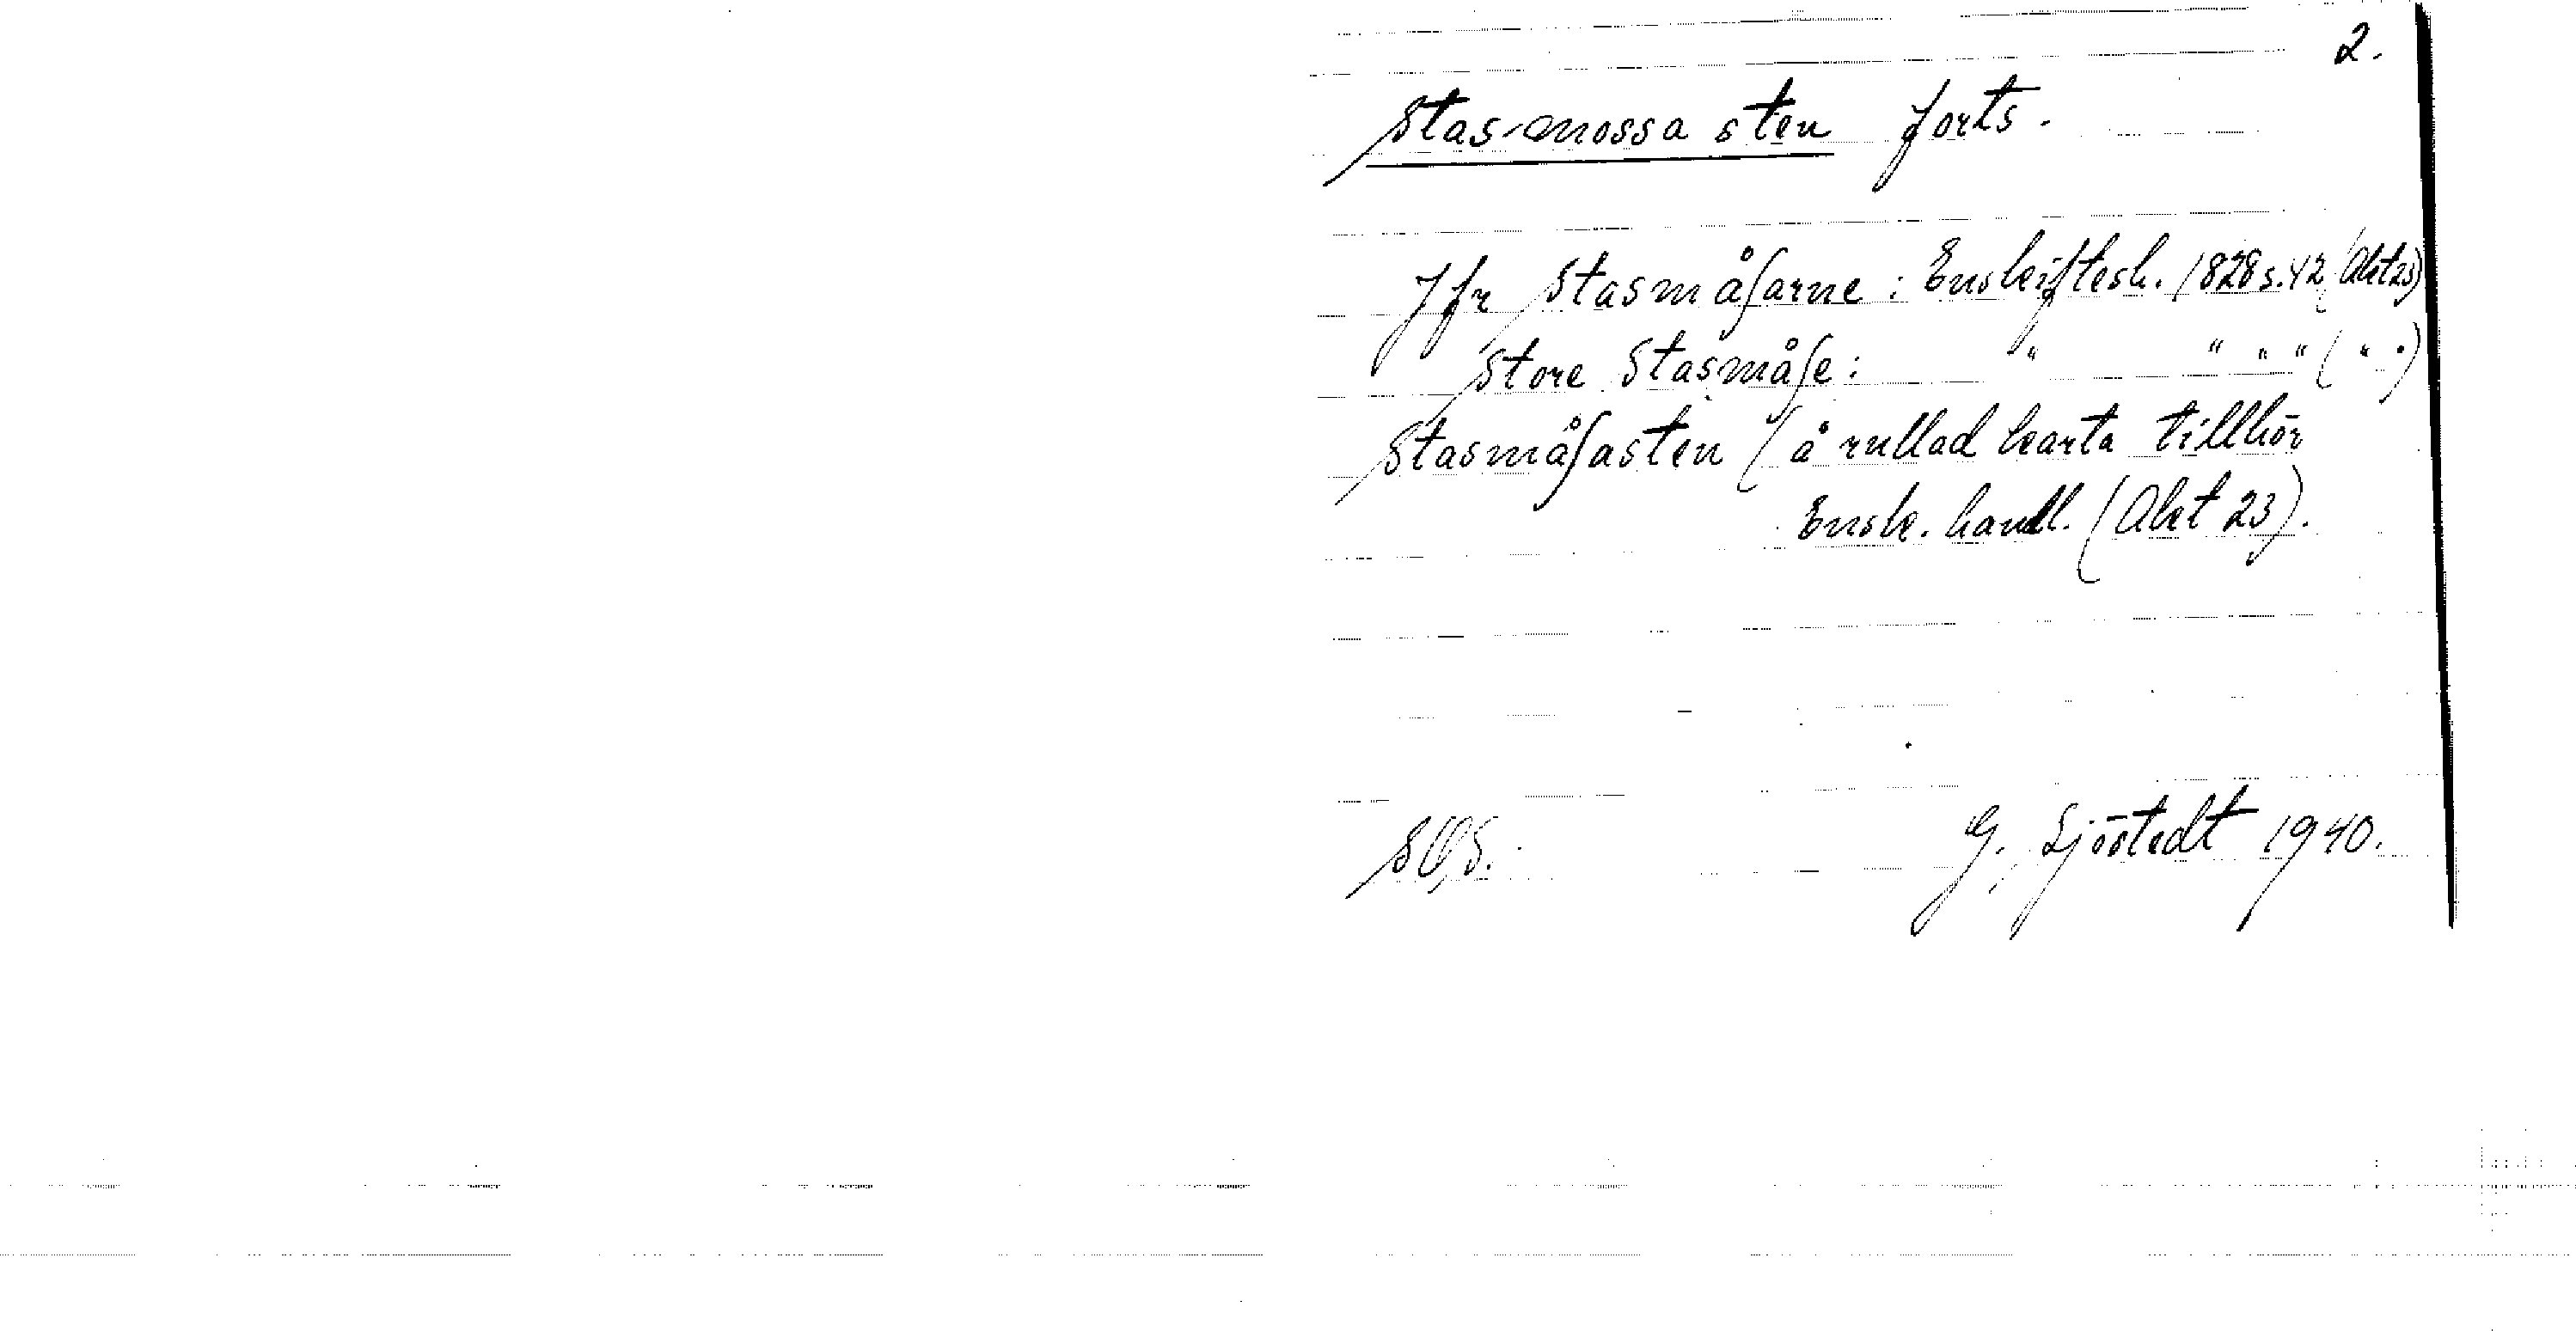 2.
Stas-mossa sten forts.
Jfr Stasmåsarne: Enskiftesh. 1828 s. 42 (Akt 23)
Store Stasmåse: " " " " ( " " )
Stasmåsasten (å rullad karta tillhör
Ensk. handl. (Akt 23).
G. Sjöstedt 1940.